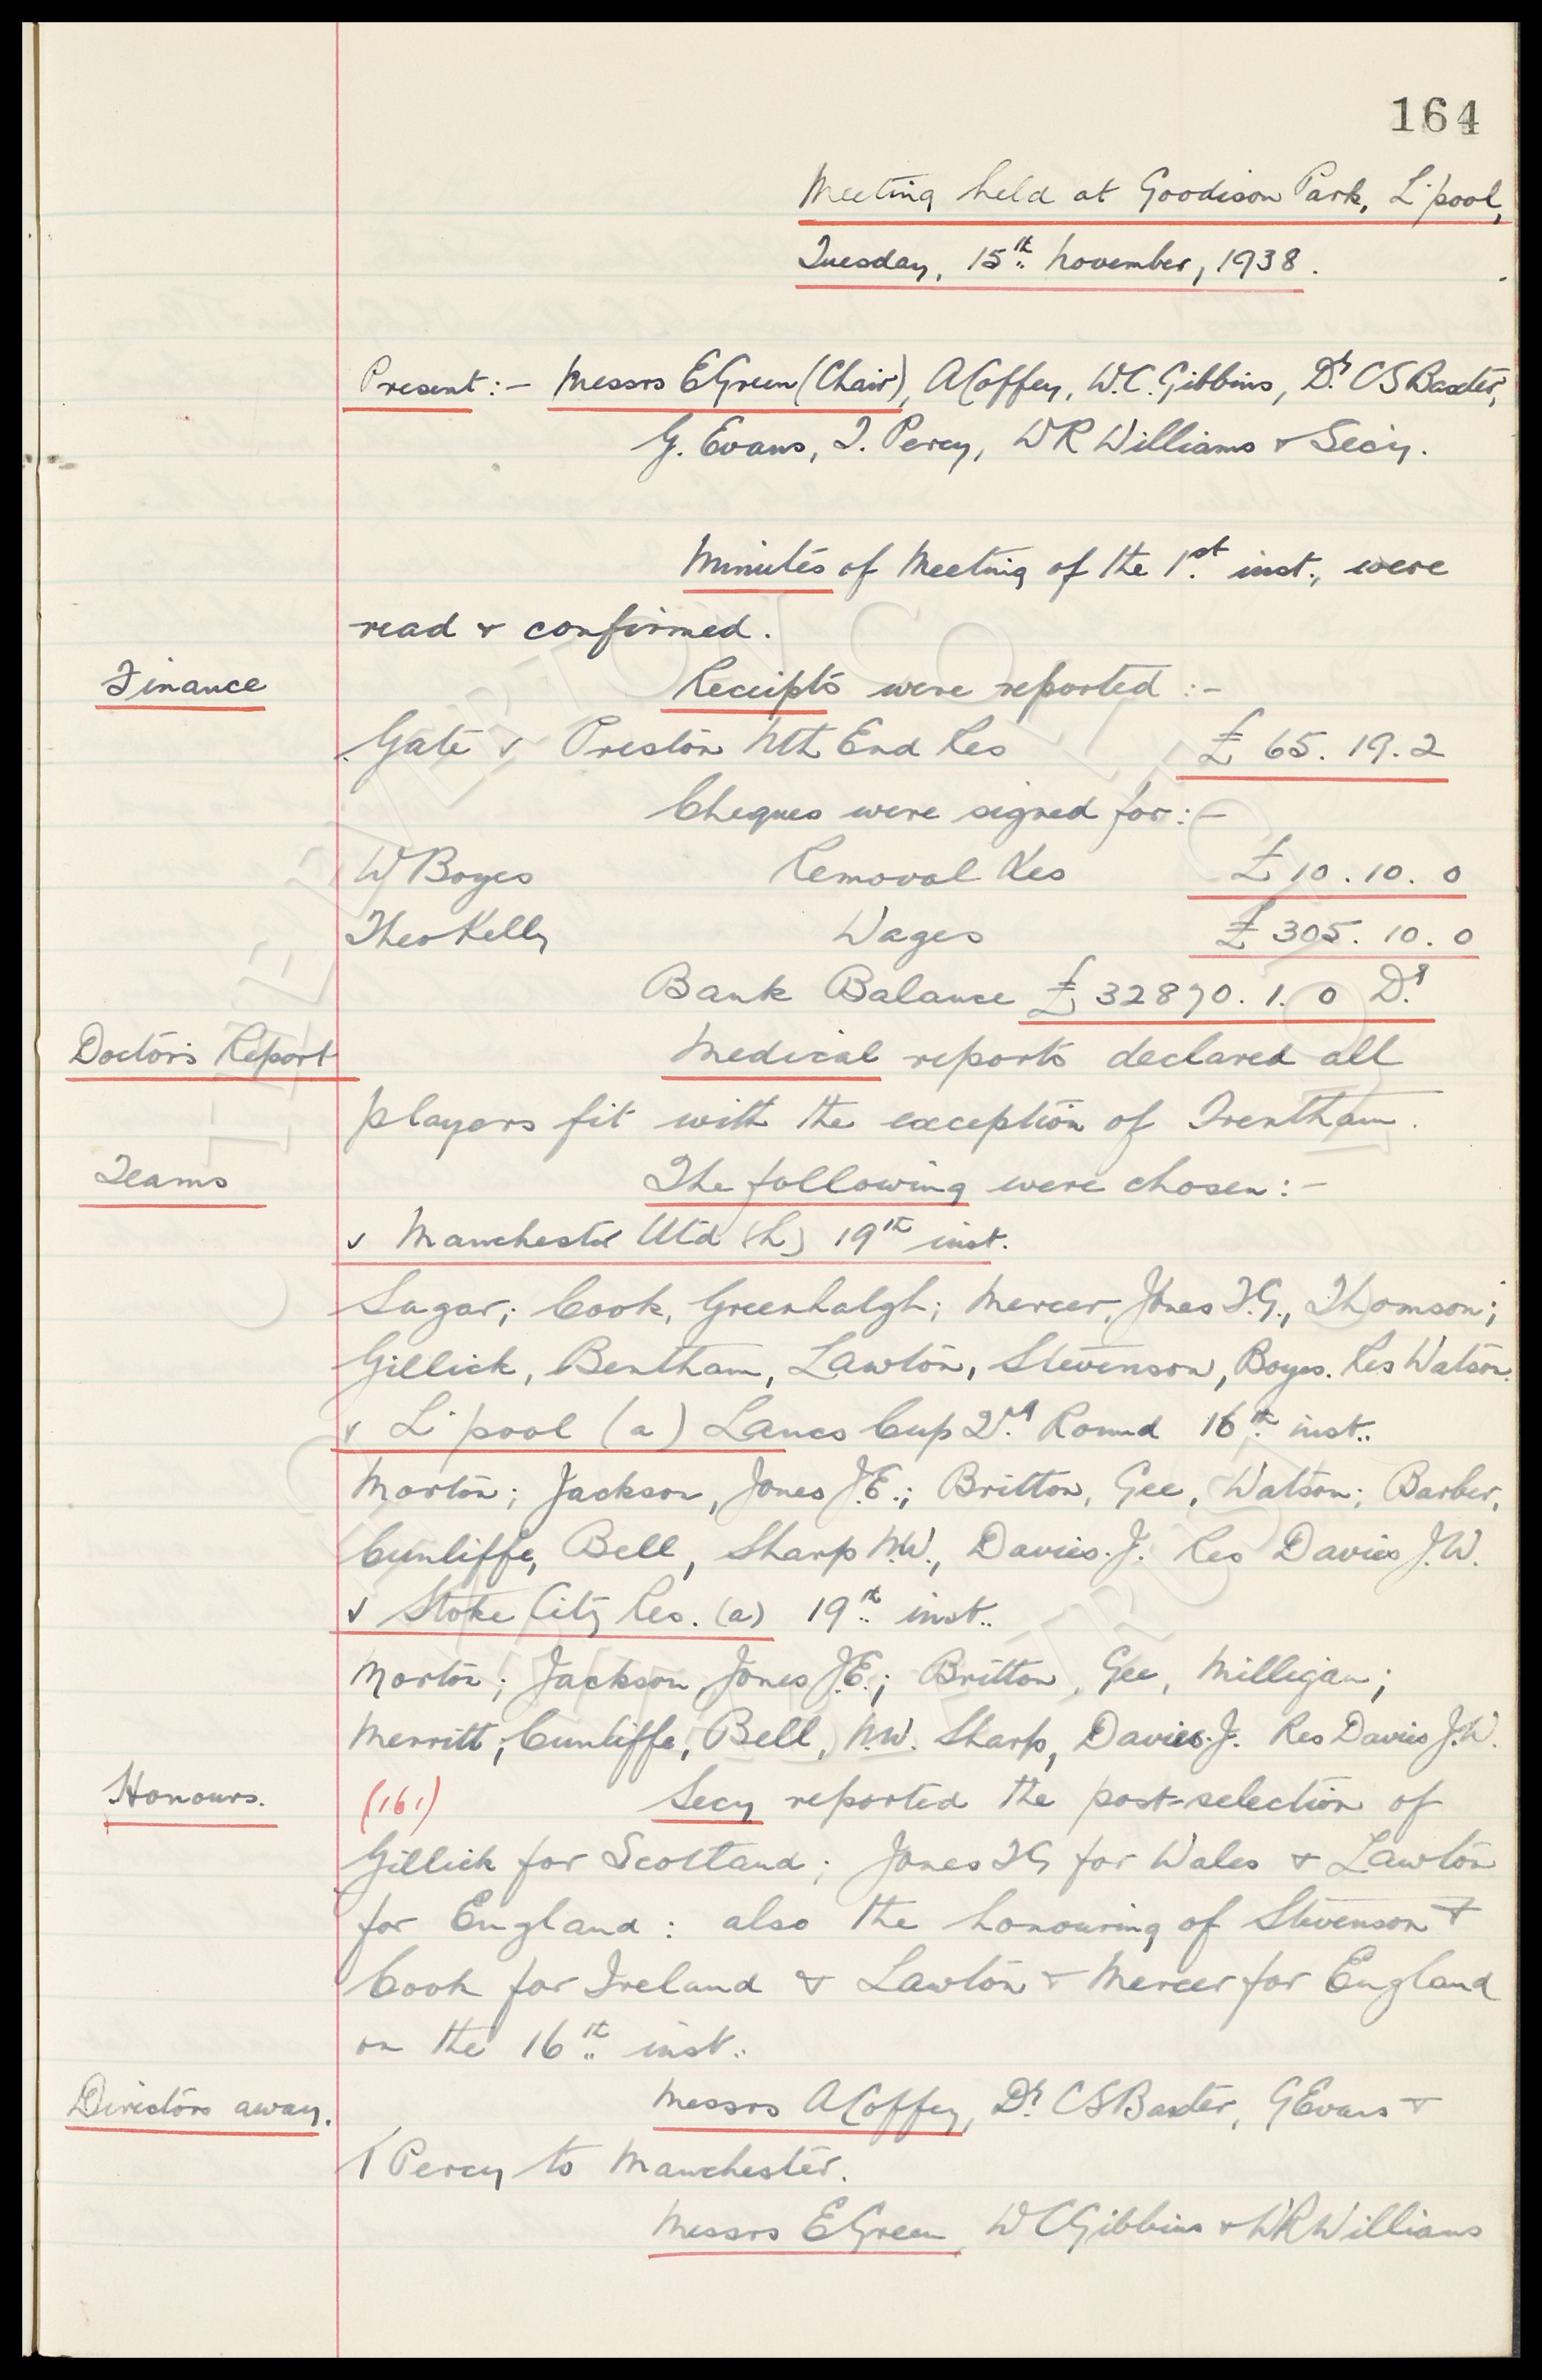 164
Meeting held at Goodison Park, L'pool,
Tuesday, 15th November, 1938.
Present:- Messrs E Green (Chair), A Coffey, W.C. Gibbins, Dr. C S Baxter,
G. Evans, T. Percy, W R Williams & Secy.
Minutes of Meeting of the 1st inst., were
read & confirmed.
Finance Receipts were reported :-
Gate v Preston Nth End Res £ 65. 19. 2
Cheques were signed for:-
W Boyes Removal Xes £ 10. 10. 0
Theo Kelly Wages £ 305. 10. 0
Bank Balance £ 32870. 1. 0 Dr
Doctor's Report Medical reports declared all
players fit with the exception of Trentham.
Teams The following were chosen:-
v Manchester Utd (L) 19th inst.
Sagar; Cook, Greenhalgh; Mercer, Jones T.G., Thomson;
Gillick, Bentham, Lawton, Stevenson, Boyes. Res Watson.
v L'pool (a) Lancs Cup 2nd Round 16th inst..
Morton; Jackson, Jones J.E.; Britton, Gee, Watson; Barber,
Cunliffe, Bell, Sharp N.W., Davies. J. Res Davies J.W.
v Stoke City Res. (a) 19th inst..
Morton; Jackson, Jones J.E.; Britton, Gee, Milligan;
Merritt; Cunliffe, Bell, N.W. Sharp, Davies. J. Res Davies J.W.
Honours. (161) Secy reported the post-selection of
Gillick for Scotland; Jones T G for Wales & Lawton
for England: also the honouring of Stevenson &
Cook for Ireland & Lawton & Mercer for England
on the 16th inst..
Directors away. Messrs A Coffey, Dr. C S Baxter, G Evans &
T Percy to Manchester.
Messrs E Green, W C Gibbins & W R Williams